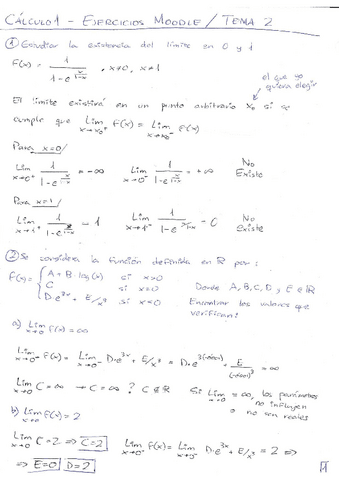 CÁLCULO 1 - EJERCICIOS MOODLE / TEMA 2
① Estudiar la existencia del límite en 0 y 1
F(x) = 1 / (1-e^(x/(1-x))) , x≠0, x≠1
el que yo quiera elegir
El límite existirá en un punto arbitrario x₀ si se
cumple que Lim x→x₀⁺ F(x) = Lim x→x₀⁻ F(x)
Para x=0/
Lim x→0⁺ 1/(1-e^(x/(1-x))) = -∞ Lim x→0⁻ 1/(1-e^(x/(1-x))) = +∞ No Existe
Para x=1/
Lim x→1⁺ 1/(1-e^(x/(1-x))) = 1 Lim x→1⁻ 1/(1-e^(x/(1-x))) = 0 No Existe
② Se considera la función definida en ℝ por:
F(x) = { A + B·log(x) si x>0
C si x=0 Donde A, B, C, D, E ∈ ℝ
D·e^(3x) + E/x³ si x<0 Encontrar los valores que
verifican:
a) Lim F(x) = ∞
Lim x→0⁻ F(x) = Lim x→0⁻ D·e^(3x) + E/x³ = D·e^ + E = ∞
Lim x→0 C = ∞ → C = ∞ ? C ∉ ℝ Si Lim = ∞, los parámetros
no influyen
o no son reales
b) Lim F(x) = 2
Lim x→0 C = 2 ⇒ C=2 Lim x→0⁻ F(x) = Lim x→0⁻ D·e^(3x) + E/x³ = 2 ⇒
⇒ E=0 D=2
1